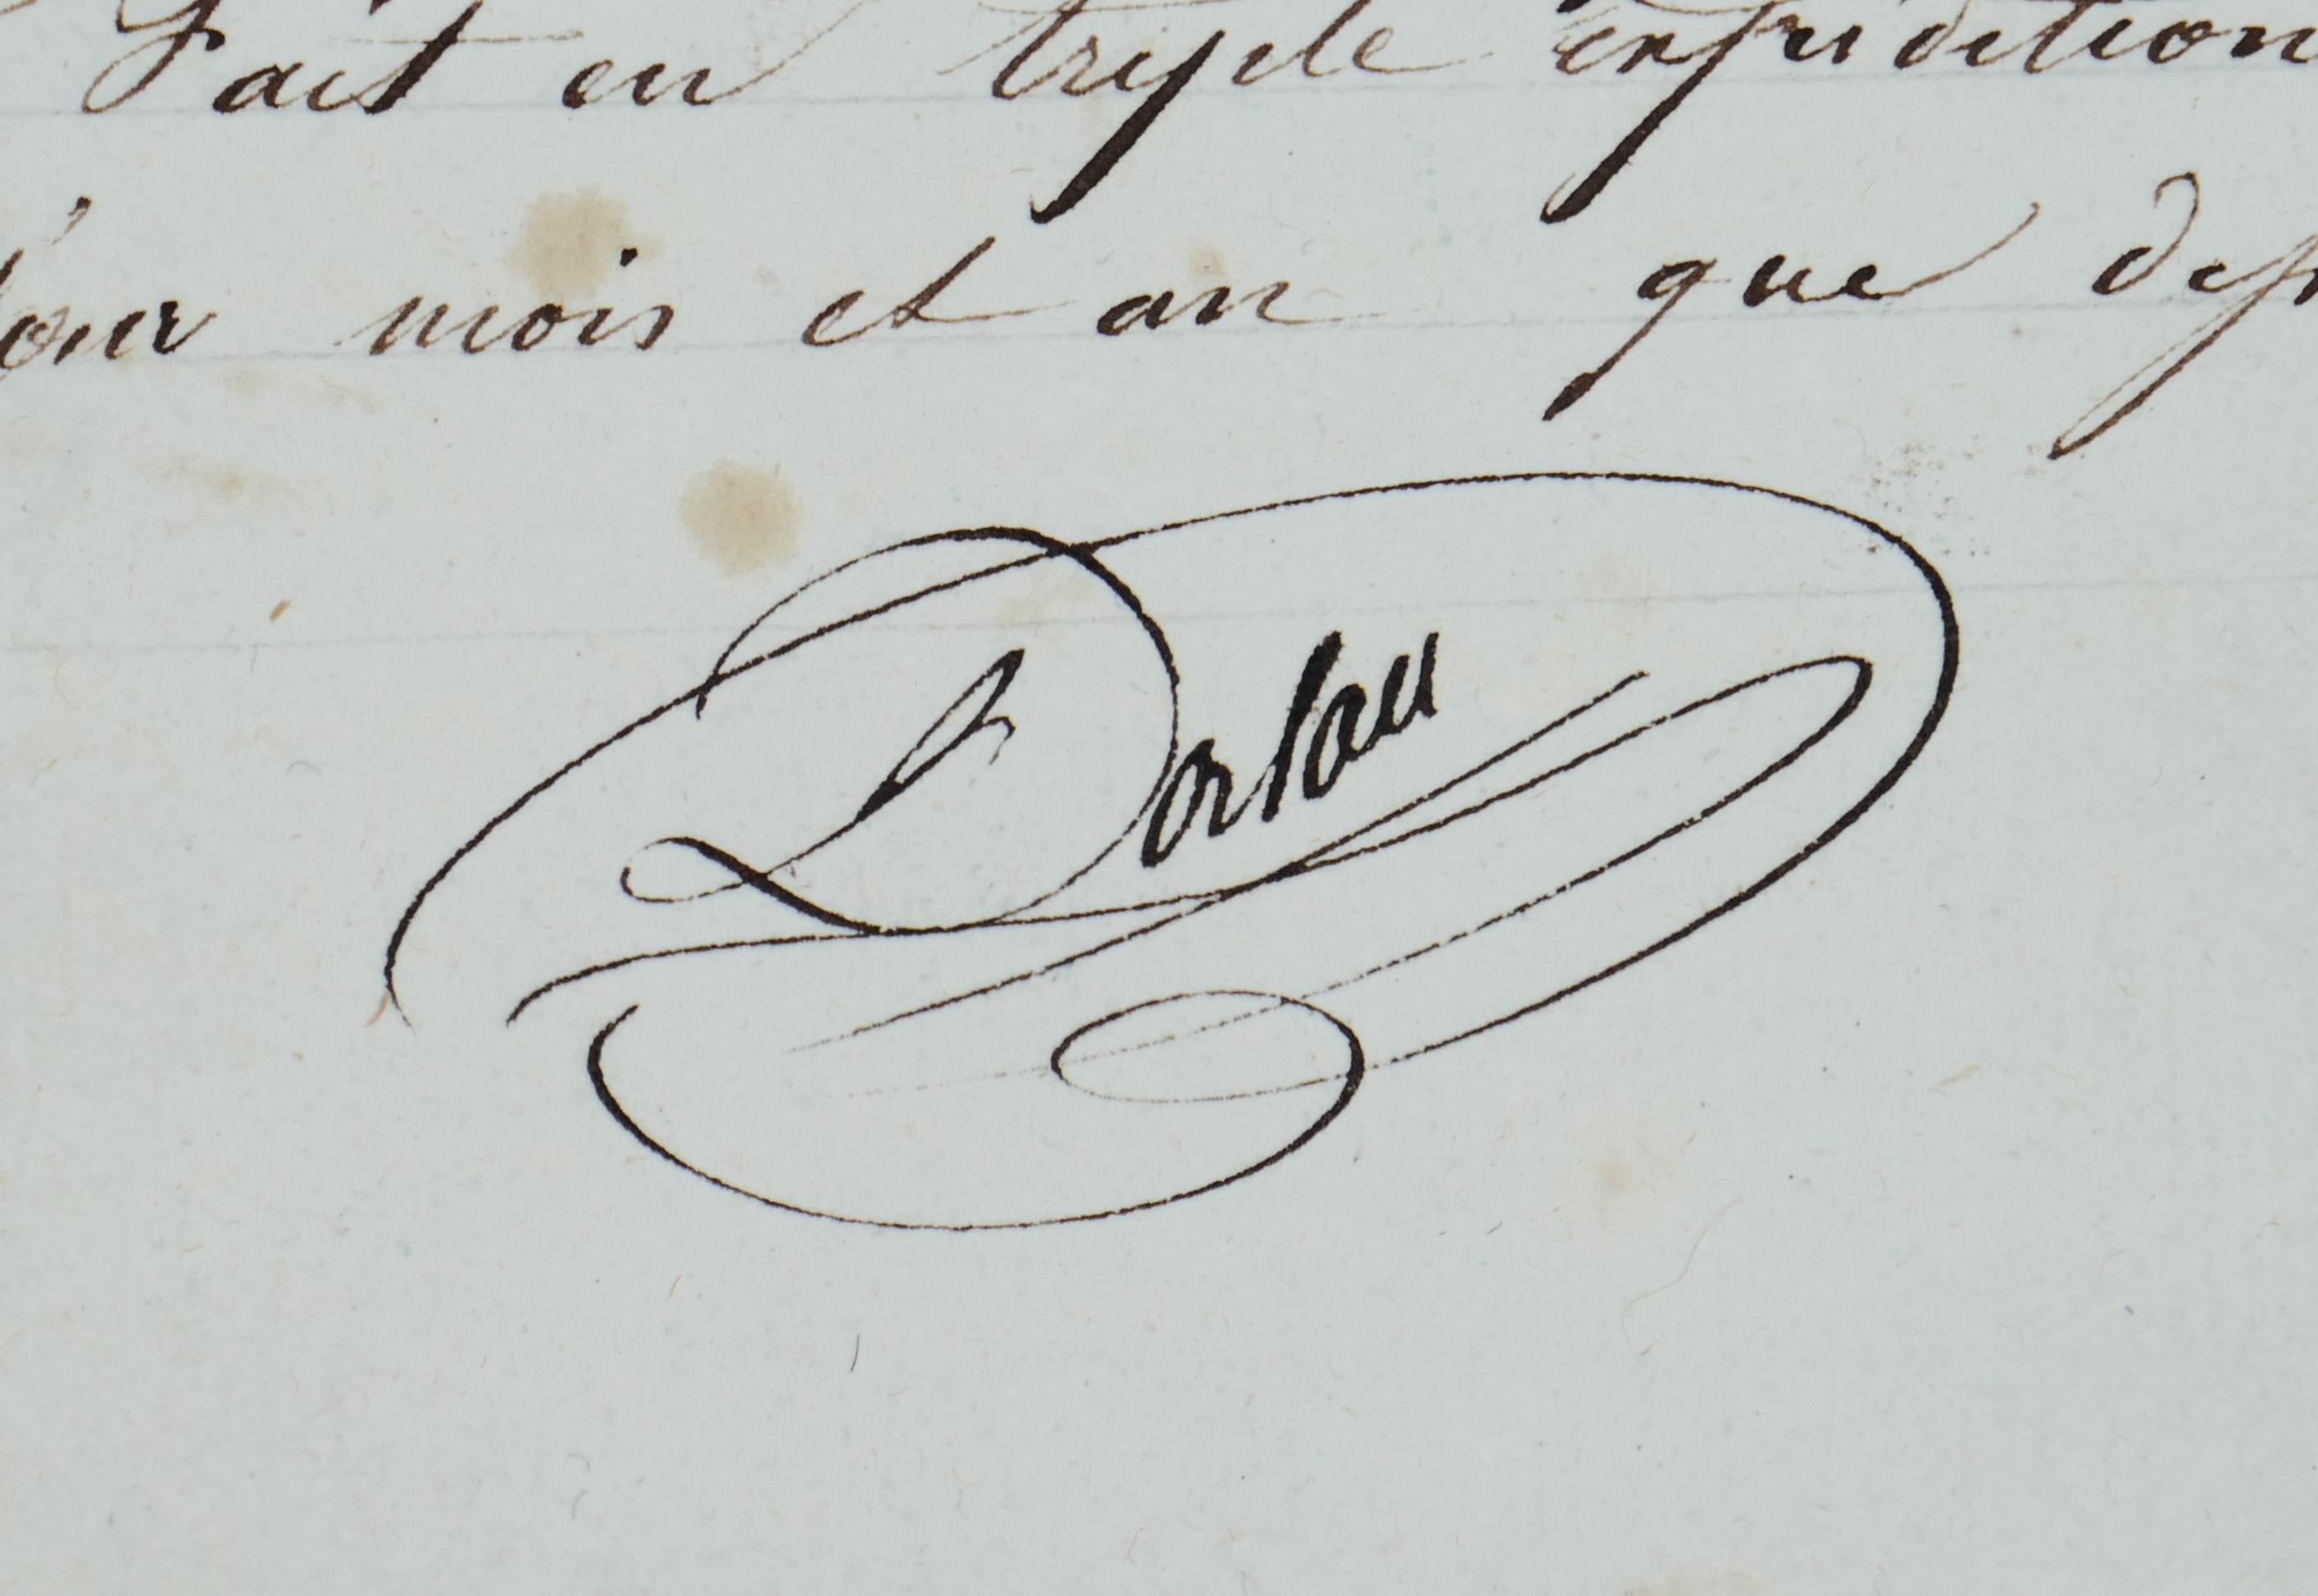 Fait en triple expédition
jour mois et an que dess
Dorlau